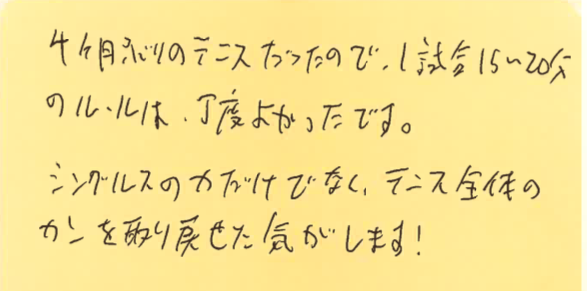 4ヶ月ぶりのテニスだったので、1試合15〜20分
のルールは、丁度よかったです。
シングルスの力だけでなく、テニス全体の
カンを取り戻せた気がします!